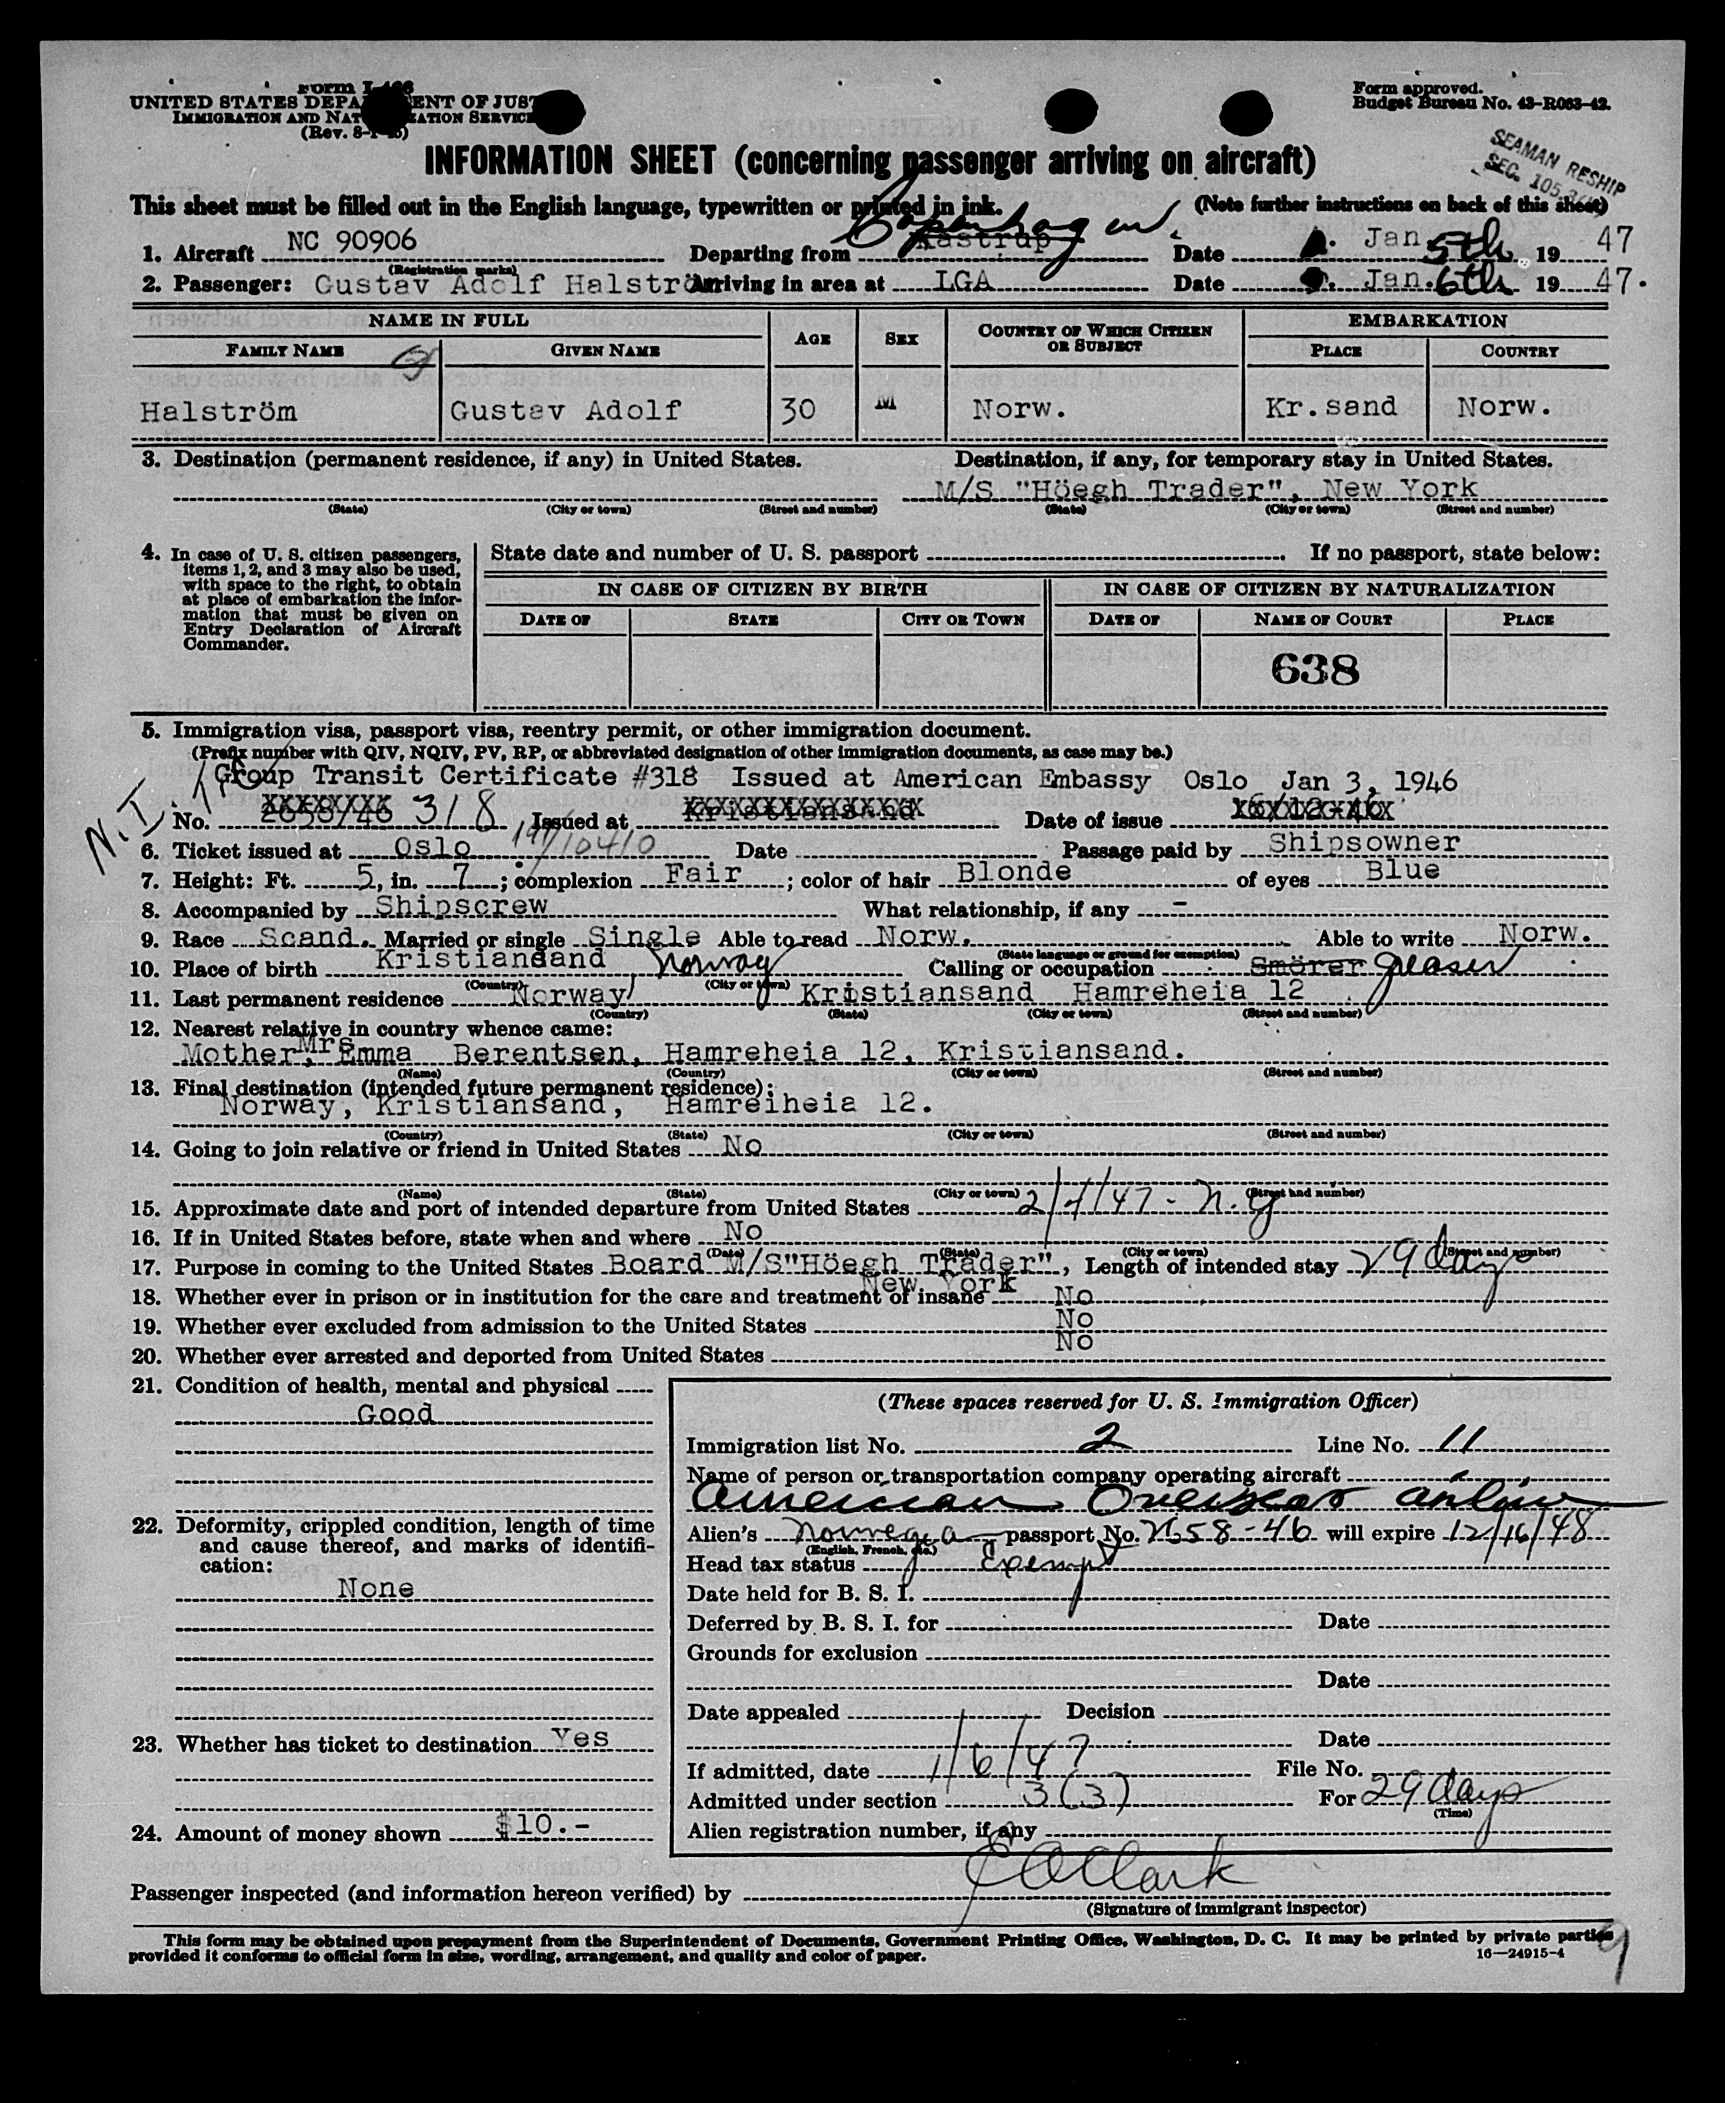 Form I-466
UNITED STATES DEPARTMENT OF JUSTICE
IMMIGRATION AND NATURALIZATION SERVICE
(Rev. 8-1-45)
Form approved.
Budget Bureau No. 43-R063-42.
SEAMAN RESHIP
SEC. 105.3
INFORMATION SHEET (concerning passenger arriving on aircraft)
This sheet must be filled out in the English language, typewritten or printed in ink. (Note further instructions on back of this sheet)
1. Aircraft NC 90906 Departing from Kastrup Copenhagen. Date Jan. 5th 1947
(Registration marks)
2. Passenger: Gustav Adolf Halström Arriving in area at LGA Date Jan. 6th 1947.
NAME IN FULL AGE SEX COUNTRY OF WHICH CITIZEN OR SUBJECT EMBARKATION
FAMILY NAME GIVEN NAME PLACE COUNTRY
Halström Gustav Adolf 30 M Norw. Kr.sand Norw.
3. Destination (permanent residence, if any) in United States. Destination, if any, for temporary stay in United States.
M/S "Höegh Trader", New York
(State) (City or town) (Street and number) (State) (City or town) (Street and number)
4. In case of U. S. citizen passengers, items 1, 2, and 3 may also be used, with space to the right, to obtain at place of embarkation the information that must be given on Entry Declaration of Aircraft Commander.
State date and number of U. S. passport If no passport, state below:
IN CASE OF CITIZEN BY BIRTH IN CASE OF CITIZEN BY NATURALIZATION
DATE OF STATE CITY OR TOWN DATE OF NAME OF COURT PLACE
638
5. Immigration visa, passport visa, reentry permit, or other immigration document.
(Prefix number with QIV, NQIV, PV, RP, or abbreviated designation of other immigration documents, as case may be.)
Group Transit Certificate #318 Issued at American Embassy Oslo Jan 3, 1946
N.T.
No. 2658/46 318 Issued at Kristiansand Date of issue 16/12-46
6. Ticket issued at Oslo 197/10410 Date Passage paid by Shipsowner
7. Height: Ft. 5, in. 7; complexion Fair; color of hair Blonde of eyes Blue
8. Accompanied by Shipscrew What relationship, if any -
9. Race Scand. Married or single Single Able to read Norw. Able to write Norw.
(State language or ground for exemption)
10. Place of birth Kristiansand Norway Calling or occupation Smörer Greaser
(Country) (City or town)
11. Last permanent residence Norway Kristiansand Hamreheia 12
(Country) (State) (City or town) (Street and number)
12. Nearest relative in country whence came:
Mother, Mrs Emma Berentsen, Hamreheia 12, Kristiansand.
(Name) (Country) (City or town) (Street and number)
13. Final destination (intended future permanent residence):
Norway, Kristiansand, Hamreiheia 12.
(Country) (State) (City or town) (Street and number)
14. Going to join relative or friend in United States No
(Name) (State) (City or town) (Street and number)
15. Approximate date and port of intended departure from United States 2/4/47 - N.Y
16. If in United States before, state when and where No
(Date) (State) (City or town) (Street and number)
17. Purpose in coming to the United States Board M/S"Höegh Trader", Length of intended stay 29 days
New York
18. Whether ever in prison or in institution for the care and treatment of insane No
19. Whether ever excluded from admission to the United States No
20. Whether ever arrested and deported from United States No
21. Condition of health, mental and physical
Good
22. Deformity, crippled condition, length of time and cause thereof, and marks of identification:
None
23. Whether has ticket to destination Yes
24. Amount of money shown $10.-
(These spaces reserved for U. S. Immigration Officer)
Immigration list No. 2 Line No. 11
Name of person or transportation company operating aircraft
American Overseas Airlines
Alien's Norwegian passport No. 2658-46 will expire 12/16/48
(English, French, etc.)
Head tax status Exempt
Date held for B. S. I.
Deferred by B. S. I. for Date
Grounds for exclusion
Date
Date appealed Decision
Date
If admitted, date 1/6/47 File No.
Admitted under section 3(3) For 29 days
(Time)
Alien registration number, if any
Passenger inspected (and information hereon verified) by E A Clark
(Signature of immigrant inspector)
This form may be obtained upon prepayment from the Superintendent of Documents, Government Printing Office, Washington, D. C. It may be printed by private parties
provided it conforms to official form in size, wording, arrangement, and quality and color of paper.
16—24915-4
9